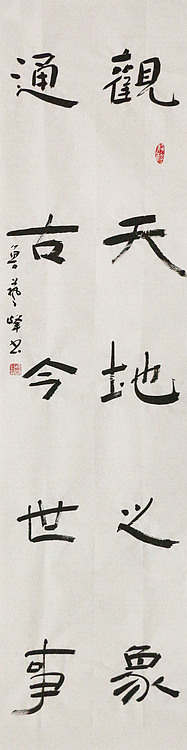 觀天地之象
通古今世事
魯藝峰書